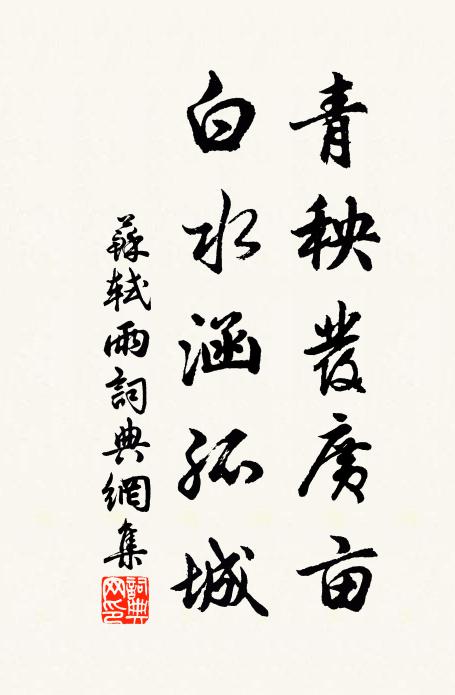 青秧發廣亩
白水涵孤城
蘇軾雨詞典網集
詞典網印